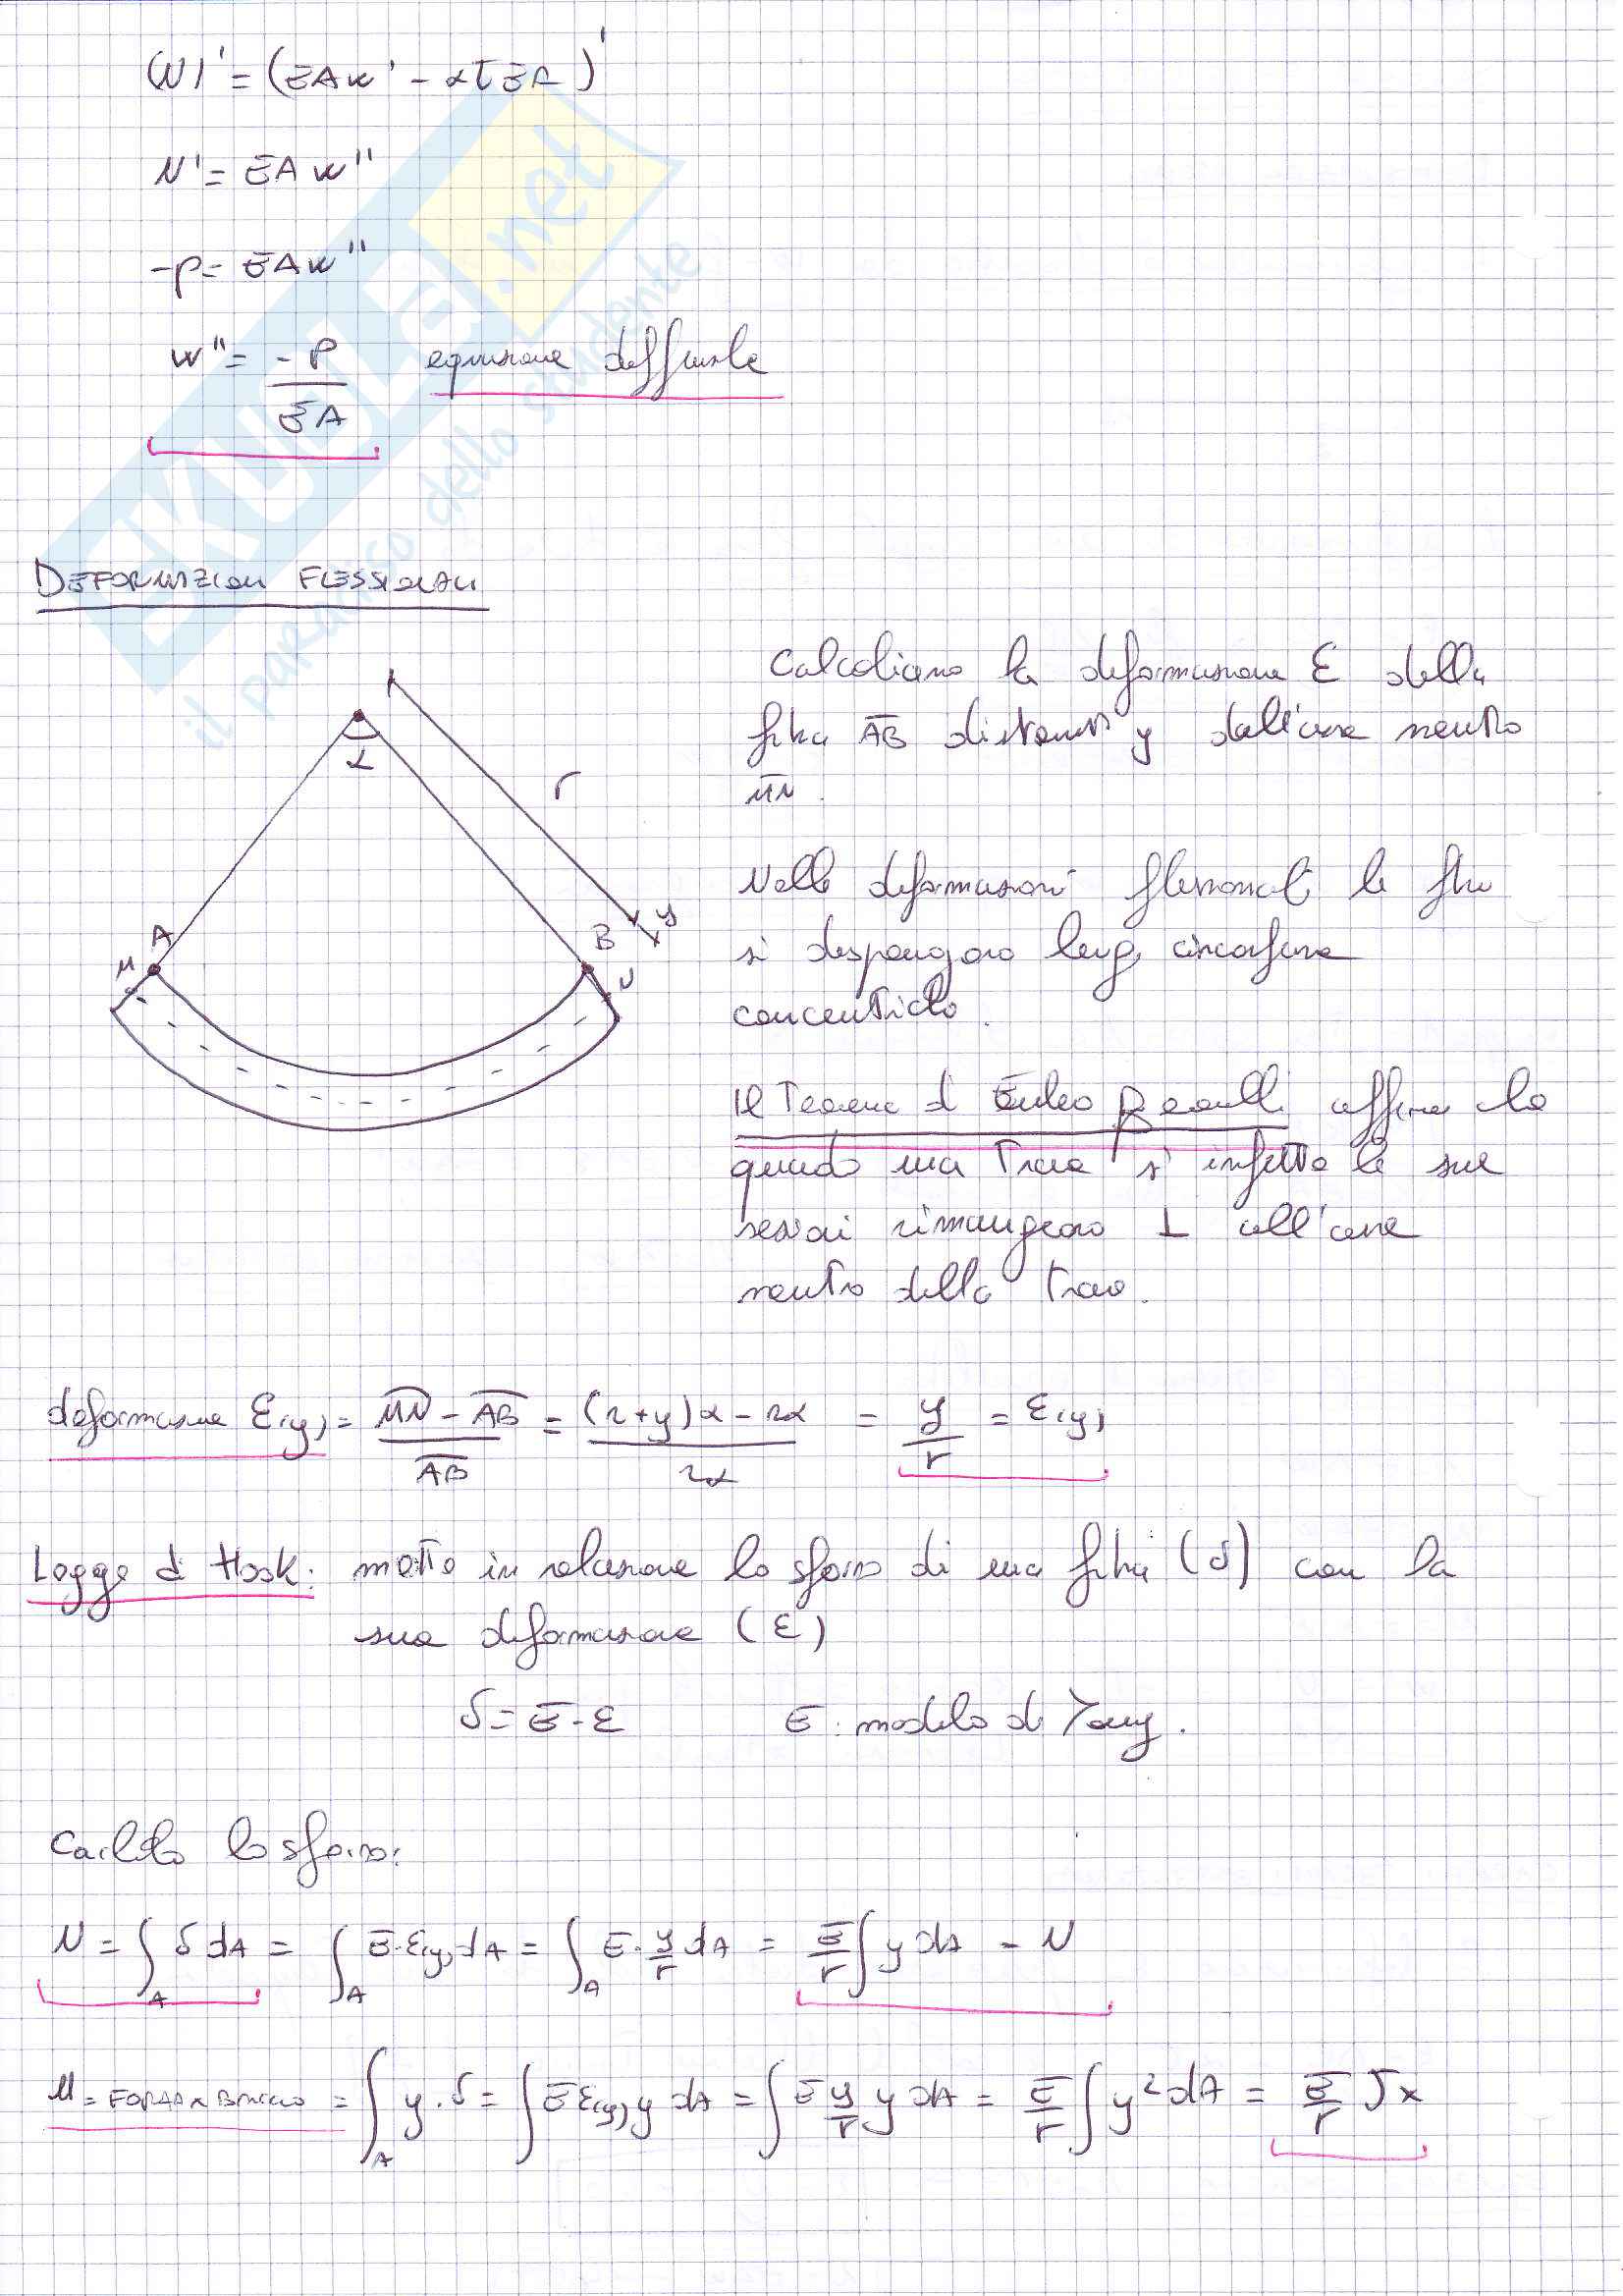 (N)' = (EAw' - αtEA)'
N' = EAw''
-p = EAw''
w'' = -p/EA equazione diff
SKUOLA.net
il paradiso dello studente
DEFORMAZIONI FLESSIONALI
Calcoliamo la deformazione ε della
fibra AB distante y dall'asse neutro
MN.
α
r
y
A
B
M
N
Nelle deformazioni flessionali le fibre
si dispongono lungo circonferenze
concentriche.
Il Teorema di Eulero Bernoulli afferma che
quando una trave si infette le sue
sezioni rimangono ⊥ all'asse
neutro della trave.
deformazione ε(y) = (MN - AB)/AB = ((r+y)α - rα)/rα = y/r = ε(y)
Legge di Hook: mette in relazione lo sforzo di una fibra (δ) con la
sua deformazione (ε)
δ = E·ε E: modulo di Young.
Calcolo lo sforzo:
N = ∫_A δ dA = ∫_A E·ε(y) dA = ∫_A E·y/r dA = E/r ∫ y dA = N
M = FORZA x BRACCIO = ∫_A y·δ = ∫ E ε(y) y dA = ∫ E y/r y dA = E/r ∫ y² dA = E/r Jx